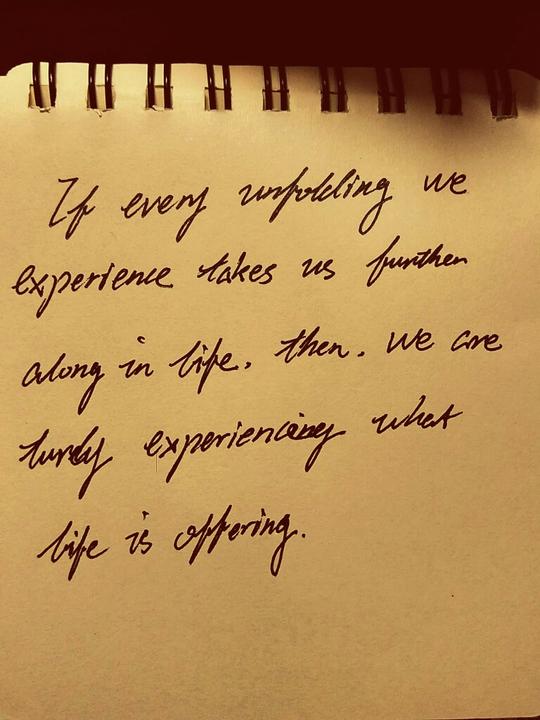 If every unfolding we
experience takes us further
along in life, then, we are
turely experiencing what
life is offering.